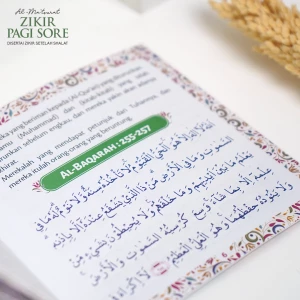 Al-Ma'tsurat
ZIKIR
PAGI SORE
DISERTAI ZIKIR SETELAH SHALAT
yang beriman kepada (Al-Qur'an)
(Muhammad) dan (kitab-kitab) yang telah
sebelum engkau, dan mereka yakin akan adanya
akhirat.
Merekalah yang mendapat petunjuk dari Tuhannya, dan
mereka itulah orang-orang yang beruntung.
AL-BAQARAH : 255-257
اللَّهُ لَا إِلَٰهَ إِلَّا هُوَ الْحَيُّ الْقَيُّومُ لَا تَأْخُذُهُ سِنَةٌ وَلَا نَوْمٌ لَهُ مَا فِي
السَّمَوَاتِ وَمَا فِي الْأَرْضِ مَنْ ذَا الَّذِي يَشْفَعُ عِنْدَهُ إِلَّا بِإِذْنِهِ
يَعْلَمُ مَا بَيْنَ أَيْدِيهِمْ وَمَا خَلْفَهُمْ وَلَا يُحِيطُونَ بِشَيْءٍ مِنْ
عِلْمِهِ إِلَّا بِمَا شَاءَ وَسِعَ كُرْسِيُّهُ السَّمَوَاتِ وَالْأَرْضَ
وَلَا يَئُودُهُ حِفْظُهُمَا وَهُوَ الْعَلِيُّ الْعَظِيمُ لَا إِكْرَاهَ